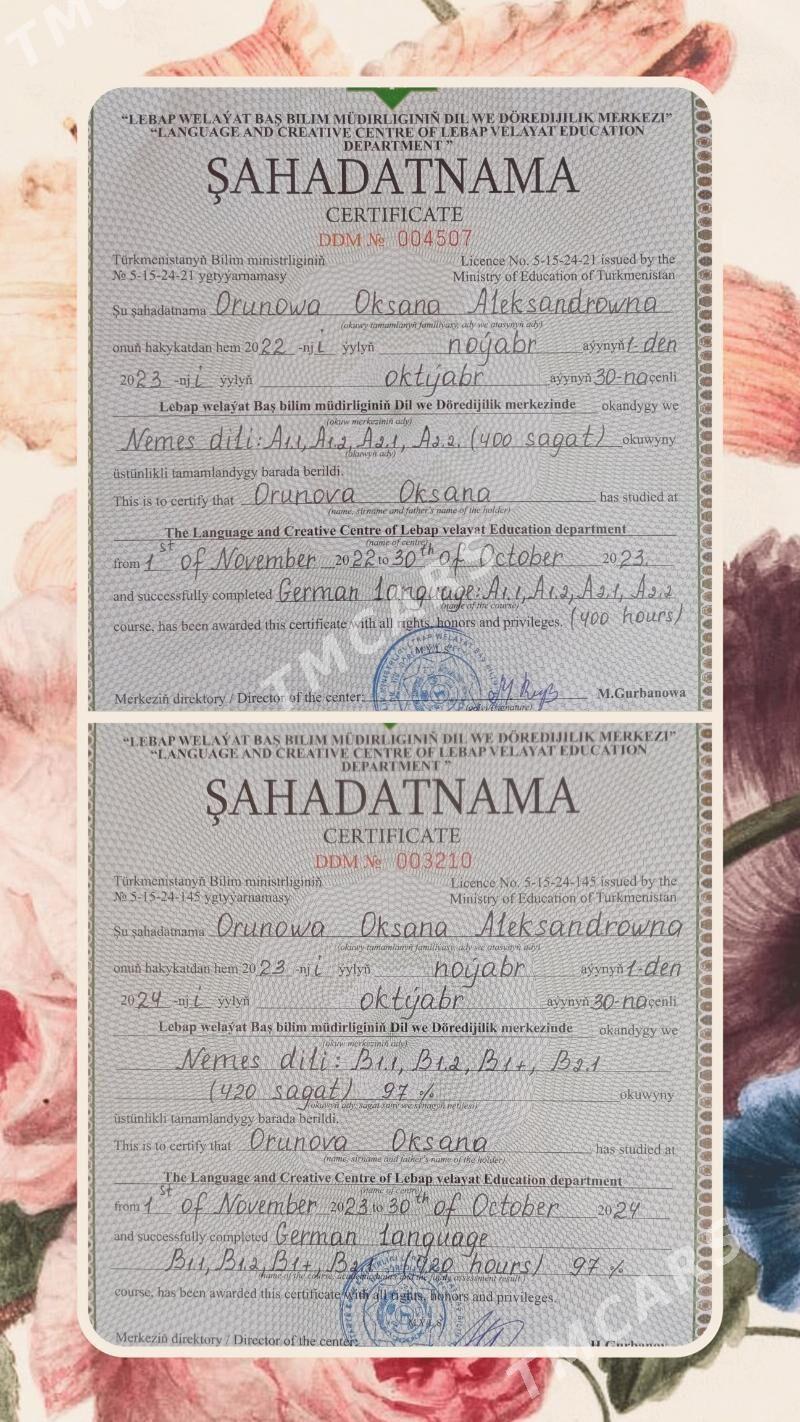 TMCARS
"LEBAP WELAÝAT BAŞ BILIM MÜDIRLIGINIŇ DIL WE DÖREDIJILIK MERKEZI"
"LANGUAGE AND CREATIVE CENTRE OF LEBAP VELAYAT EDUCATION
DEPARTMENT"
ŞAHADATNAMA
CERTIFICATE
DDM № 004507
Türkmenistanyň Bilim ministrliginiň Licence No. 5-15-24-21 issued by the
№ 5-15-24-21 ygtyýarnamasy Ministry of Education of Turkmenistan
Şu şahadatnama Orunowa Oksana Aleksandrowna
(okuwy tamamlanyň familiýasy, ady we atasynyň ady)
onuň hakykatdan hem 2022 -nji ýylyň noýabr aýynyň 1-den
2023 -nji ýylyň oktýabr aýynyň 30-na çenli
Lebap welaýat Baş bilim müdirliginiň Dil we Döredijilik merkezinde okandygy we
(okuw merkeziniň ady)
Nemes dili: A1.1, A1.2, A2.1, A2.2. (400 sagat) okuwyny
(okuwyň ady)
üstünlikli tamamlandygy barada berildi.
This is to certify that Orunova Oksana has studied at
(name, sirname and father's name of the holder)
The Language and Creative Centre of Lebap velayat Education department
(name of centre)
from 1st of November 2022 to 30th of October 2023.
and successfully completed German language: A1.1, A1.2, A2.1, A2.2
(name of the course)
course, has been awarded this certificate with all rights, honors and privileges. (400 hours)
Merkeziň direktory / Director of the center: M.Gurbanowa
(goly/signature)
"LEBAP WELAÝAT BAŞ BILIM MÜDIRLIGINIŇ DIL WE DÖREDIJILIK MERKEZI"
"LANGUAGE AND CREATIVE CENTRE OF LEBAP VELAYAT EDUCATION
DEPARTMENT"
ŞAHADATNAMA
CERTIFICATE
DDM № 003210
Türkmenistanyň Bilim ministrliginiň Licence No. 5-15-24-145 issued by the
№ 5-15-24-145 ygtyýarnamasy Ministry of Education of Turkmenistan
Şu şahadatnama Orunowa Oksana Aleksandrowna
(okuwy tamamlanyň familiýasy, ady we atasynyň ady)
onuň hakykatdan hem 2023 -nji ýylyň noýabr aýynyň 1-den
2024 -nji ýylyň oktýabr aýynyň 30-na çenli
Lebap welaýat Baş bilim müdirliginiň Dil we Döredijilik merkezinde okandygy we
(okuw merkeziniň ady)
Nemes dili: B1.1, B1.2, B1+, B2.1
(420 sagat) 97 % okuwyny
üstünlikli tamamlandygy barada berildi.
This is to certify that Orunova Oksana has studied at
(name, sirname and father's name of the holder)
The Language and Creative Centre of Lebap velayat Education department
(name of centre)
from 1st of November 2023 to 30th of October 2024
and successfully completed German language
B1.1, B1.2, B1+, B2.1 (420 hours) 97 %
course, has been awarded this certificate with all rights, honors and privileges.
Merkeziň direktory / Director of the center:
TMCARS
TMCARS
TMCARS